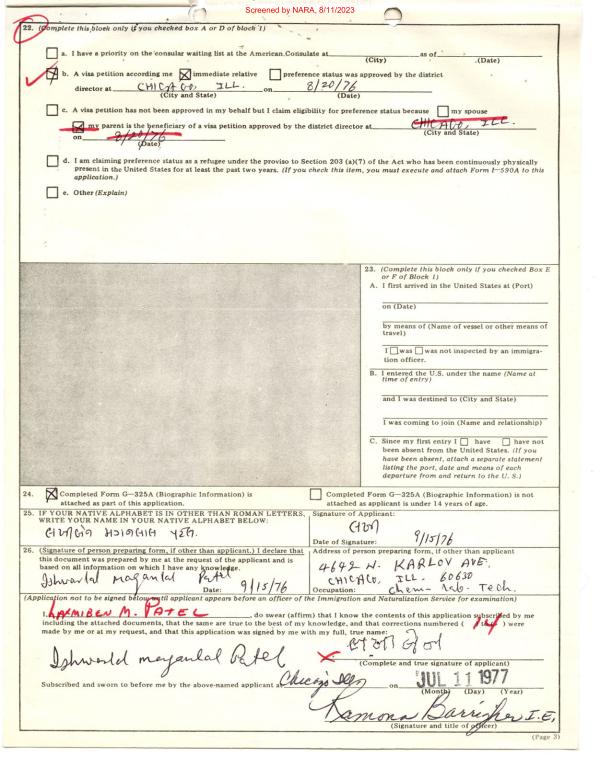 Screened by NARA, 8/11/2023
22. (Complete this block only if you checked box A or D of block 1)
a. I have a priority on the consular waiting list at the American Consulate at as of .
(City) (Date)
b. A visa petition according me immediate relative preference status was approved by the district
director at CHICAGO, ILL. on 8/20/76
(City and State) (Date)
c. A visa petition has not been approved in my behalf but I claim eligibility for preference status because my spouse
my parent is the beneficiary of a visa petition approved by the district director at CHICAGO, ILL.
on 8/20/76 (City and State)
(Date)
d. I am claiming preference status as a refugee under the proviso to Section 203 (a)(7) of the Act who has been continuously physically
present in the United States for at least the past two years. (If you check this item, you must execute and attach Form I-590A to this
application.)
e. Other (Explain)
23. (Complete this block only if you checked Box E
or F of Block 1)
A. I first arrived in the United States at (Port)
on (Date)
by means of (Name of vessel or other means of
travel)
I was was not inspected by an immigra-
tion officer.
B. I entered the U.S. under the name (Name at
time of entry)
and I was destined to (City and State)
I was coming to join (Name and relationship)
C. Since my first entry I have have not
been absent from the United States. (If you
have been absent, attach a separate statement
listing the port, date and means of each
departure from and return to the U. S.)
24. Completed Form G-325A (Biographic Information) is
attached as part of this application.
Completed Form G-325A (Biographic Information) is not
attached as applicant is under 14 years of age.
25. IF YOUR NATIVE ALPHABET IS IN OTHER THAN ROMAN LETTERS,
WRITE YOUR NAME IN YOUR NATIVE ALPHABET BELOW:
Signature of Applicant:
Date of Signature: 9/15/76
26. (Signature of person preparing form, if other than applicant.) I declare that
this document was prepared by me at the request of the applicant and is
based on all information on which I have any knowledge.
Ishwarlal maganlal Patel
Date: 9/15/76
Address of person preparing form, if other than applicant
4642 N. KARLOV AVE.
CHICAGO, ILL. 60630
Occupation: chem- Lab. Tech.
(Application not to be signed below until applicant appears before an officer of the Immigration and Naturalization Service for examination)
I, LAXMIBEN M. PATEL do swear (affirm) that I know the contents of this application subscribed by me
including the attached documents, that the same are true to the best of my knowledge, and that corrections numbered ( ) were
made by me or at my request, and that this application was signed by me with my full, true name:
Ishwarlal maganlal Patel
(Complete and true signature of applicant)
Subscribed and sworn to before me by the above-named applicant at Chicago Ill on JUL 11 1977
(Month) (Day) (Year)
Ramona I.E.
(Signature and title of officer)
(Page 3)